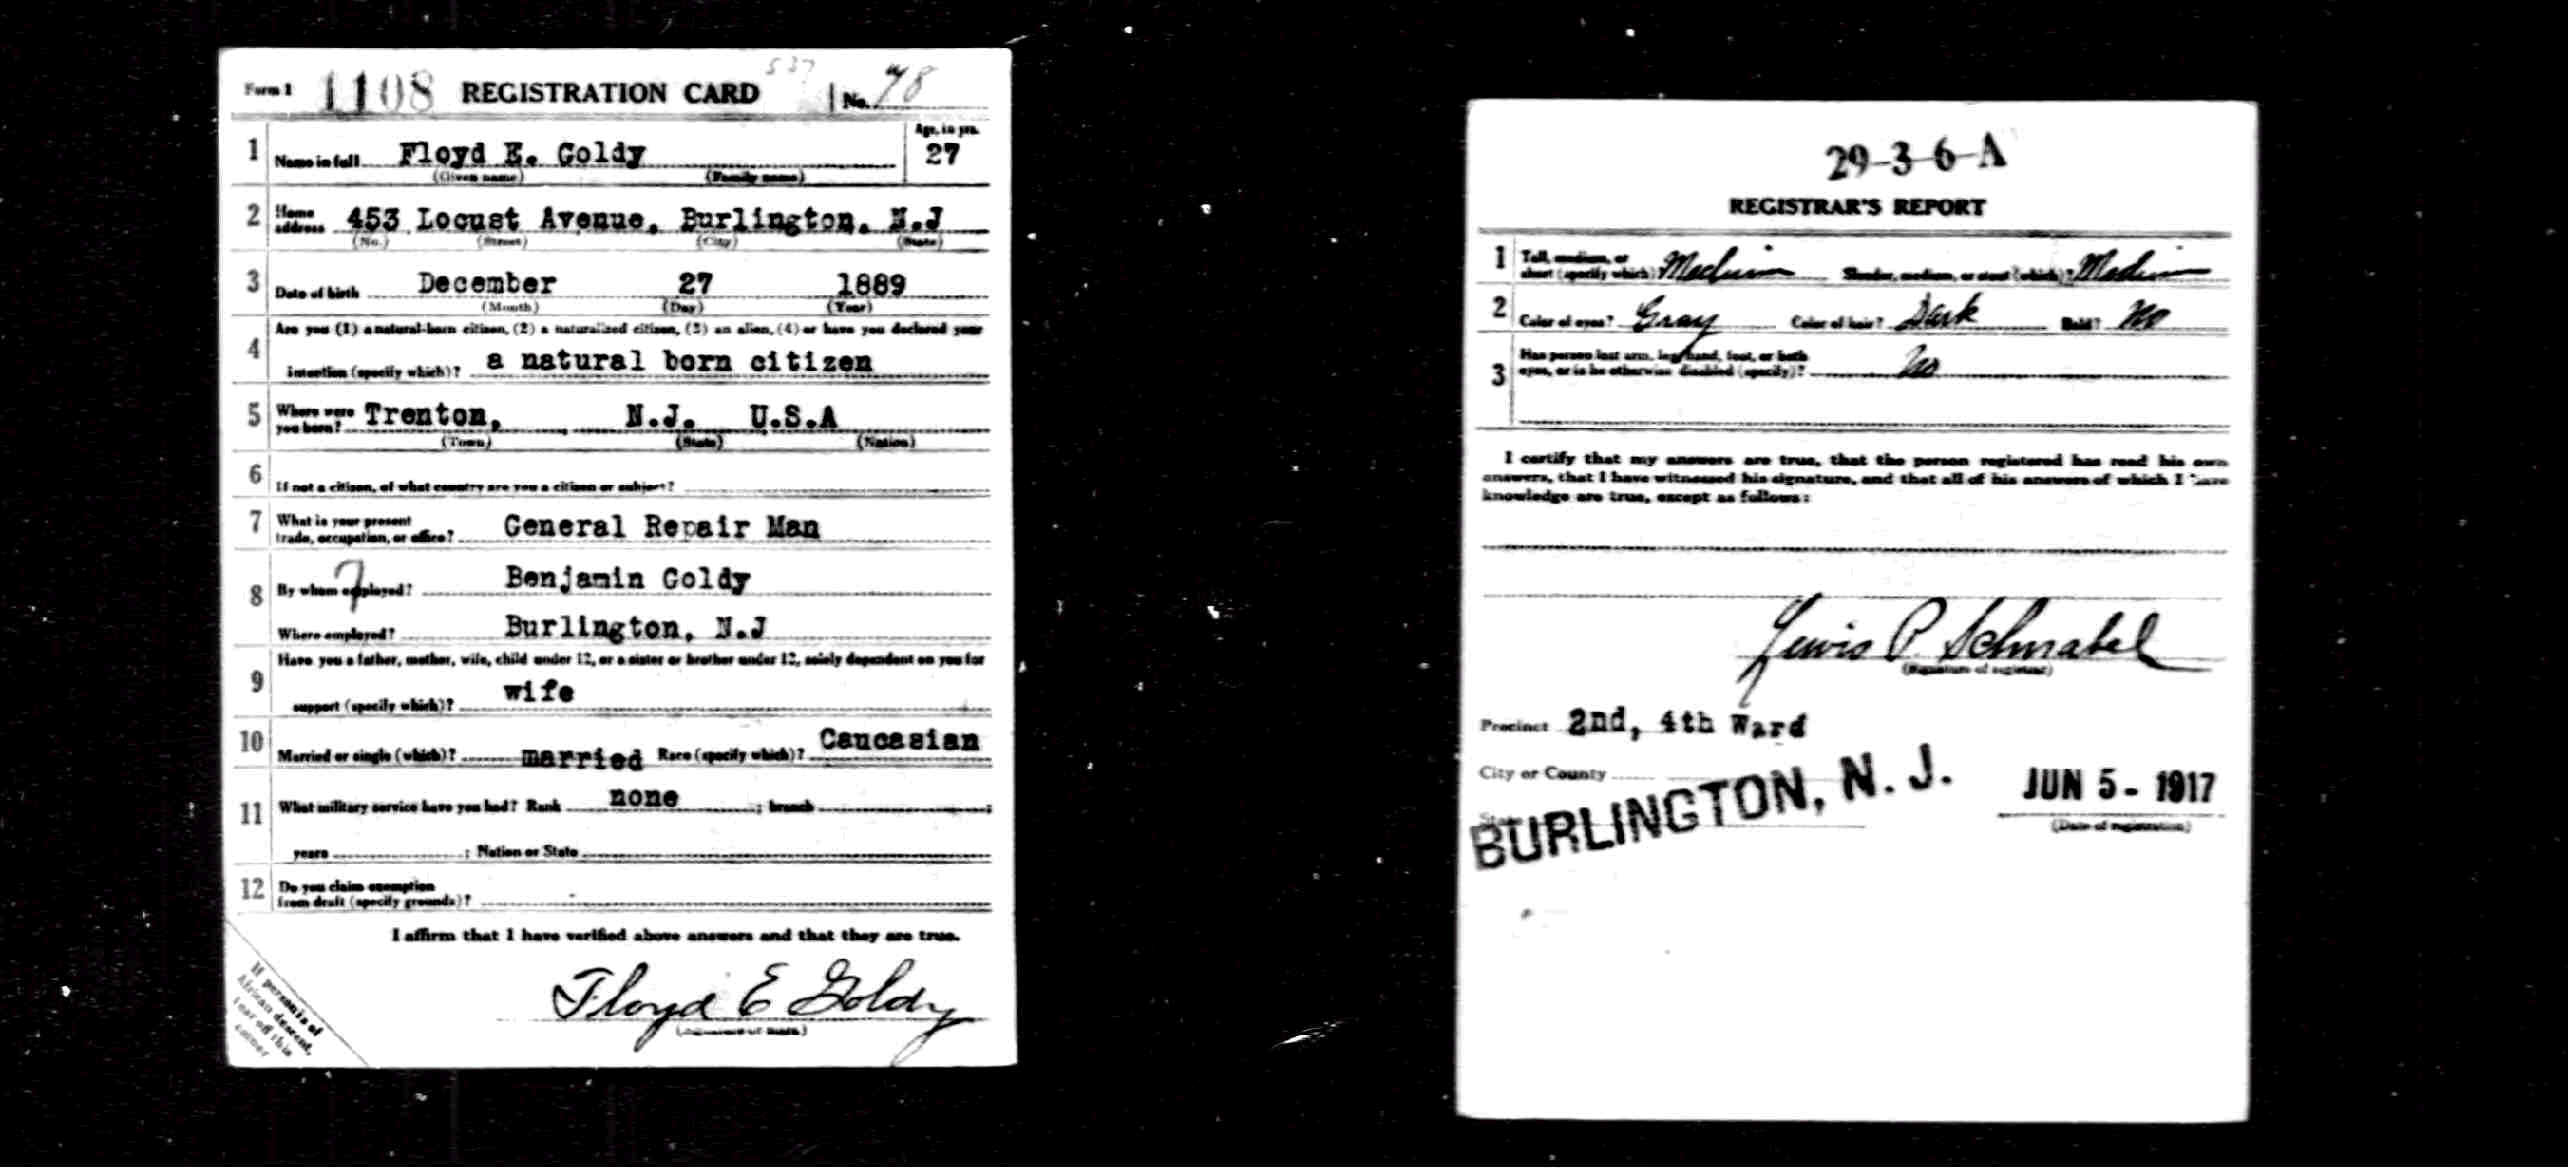 Form 1 1108 REGISTRATION CARD 537 No. 78
1 Name in full Floyd E. Goldy Age, in yrs. 27
(Given name) (Family name)
2 Home address 453 Locust Avenue, Burlington, N.J
(No.) (Street) (City) (State)
3 Date of birth December 27 1889
(Month) (Day) (Year)
Are you (1) a natural-born citizen, (2) a naturalized citizen, (3) an alien, (4) or have you declared your
4 intention (specify which)? a natural born citizen
5 Where were you born? Trenton, N.J. U.S.A
(Town) (State) (Nation)
6 If not a citizen, of what country are you a citizen or subject?
7 What is your present trade, occupation, or office? General Repair Man
8 By whom employed? Benjamin Goldy
Where employed? Burlington, N.J
Have you a father, mother, wife, child under 12, or a sister or brother under 12, solely dependent on you for
9 support (specify which)? wife
10 Married or single (which)? married Race (specify which)? Caucasian
11 What military service have you had? Rank none ; branch ;
years ; Nation or State
12 Do you claim exemption from draft (specify grounds)?
I affirm that I have verified above answers and that they are true.
Floyd E Goldy
If person is of
African descent,
tear off this
corner
29-3-6-A
REGISTRAR'S REPORT
1 Tall, medium, or short (specify which)? Medium Slender, medium, or stout (which)? Medium
2 Color of eyes? Gray Color of hair? Dark Bald? No
3 Has person lost arm, leg, hand, foot, or both
eyes, or is he otherwise disabled (specify)? No
I certify that my answers are true, that the person registered has read his own
answers, that I have witnessed his signature, and that all of his answers of which I have
knowledge are true, except as follows:
Lewis P Schnabel
(Signature of registrar)
Precinct 2nd, 4th Ward
City or County
State
BURLINGTON, N. J.
JUN 5 - 1917
(Date of registration)